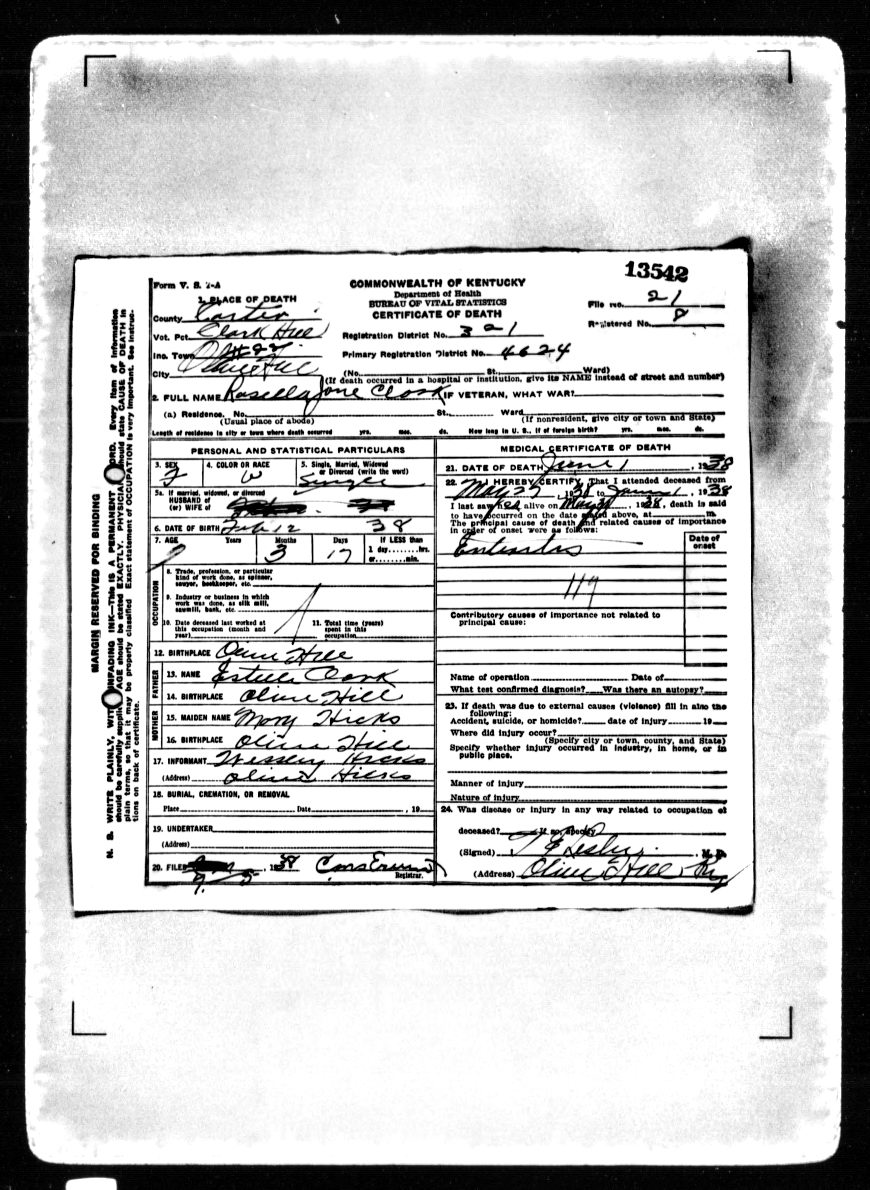 13542
Form V. S. 1-A
COMMONWEALTH OF KENTUCKY
Department of Health
BUREAU OF VITAL STATISTICS
CERTIFICATE OF DEATH
File No. 21
Registered No. 8
1. PLACE OF DEATH
County Carter
Vot. Pct. Clark Hill
Inc. Town
City Olive Hill
Registration District No. 321
Primary Registration District No. 4624
(No. St. Ward)
(If death occurred in a hospital or institution, give its NAME instead of street and number)
2. FULL NAME Rosella Jane Clark IF VETERAN, WHAT WAR?
(a) Residence. No. St., Ward
(Usual place of abode) (If nonresident, give city or town and State)
Length of residence in city or town where death occurred yrs. mos. ds. How long in U. S., if of foreign birth? yrs. mos. ds.
PERSONAL AND STATISTICAL PARTICULARS
3. SEX F
4. COLOR OR RACE W
5. Single, Married, Widowed or Divorced (write the word) Single
5a. If married, widowed, or divorced
HUSBAND of
(or) WIFE of
6. DATE OF BIRTH Feb 12 38
7. AGE Years Months 3 Days 17 If LESS than
1 day........hrs.
or........min.
OCCUPATION
8. Trade, profession, or particular
kind of work done, as spinner,
sawyer, bookkeeper, etc.
9. Industry or business in which
work was done, as silk mill,
sawmill, bank, etc.
10. Date deceased last worked at
this occupation (month and
year)
11. Total time (years)
spent in this
occupation
12. BIRTHPLACE Olive Hill
FATHER
13. NAME Estill Clark
14. BIRTHPLACE Olive Hill
MOTHER
15. MAIDEN NAME Mary Hicks
16. BIRTHPLACE Olive Hill
17. INFORMANT Wessley Hicks
(Address)
18. BURIAL, CREMATION, OR REMOVAL
Place Date , 19
19. UNDERTAKER
(Address)
20. FILED 9 5 , 1938
Registrar.
MEDICAL CERTIFICATE OF DEATH
21. DATE OF DEATH June 1 , 1938
22. I HEREBY CERTIFY, That I attended deceased from
May 27, 1938 to June 1, 1938
I last saw her alive on May , 1938, death is said
to have occurred on the date stated above, at m.
The principal cause of death and related causes of importance
in order of onset were as follows:
Date of
onset
119
Contributory causes of importance not related to
principal cause:
Name of operation Date of
What test confirmed diagnosis? Was there an autopsy?
23. If death was due to external causes (violence) fill in also the
following:
Accident, suicide, or homicide? date of injury 19
Where did injury occur?
(Specify city or town, county, and State)
Specify whether injury occurred in industry, in home, or in
public place.
Manner of injury
Nature of injury
24. Was disease or injury in any way related to occupation of
deceased? If so, specify
(Signed) M. D.
(Address) Olive Hill Ky
MARGIN RESERVED FOR BINDING
N. B. WRITE PLAINLY, WITH UNFADING INK—This is A PERMANENT RECORD. Every item of information
should be carefully supplied. AGE should be stated EXACTLY. PHYSICIANS should state CAUSE OF DEATH in
plain terms, so that it may be properly classified. Exact statement of OCCUPATION is very important. See instruc-
tions on back of certificate.